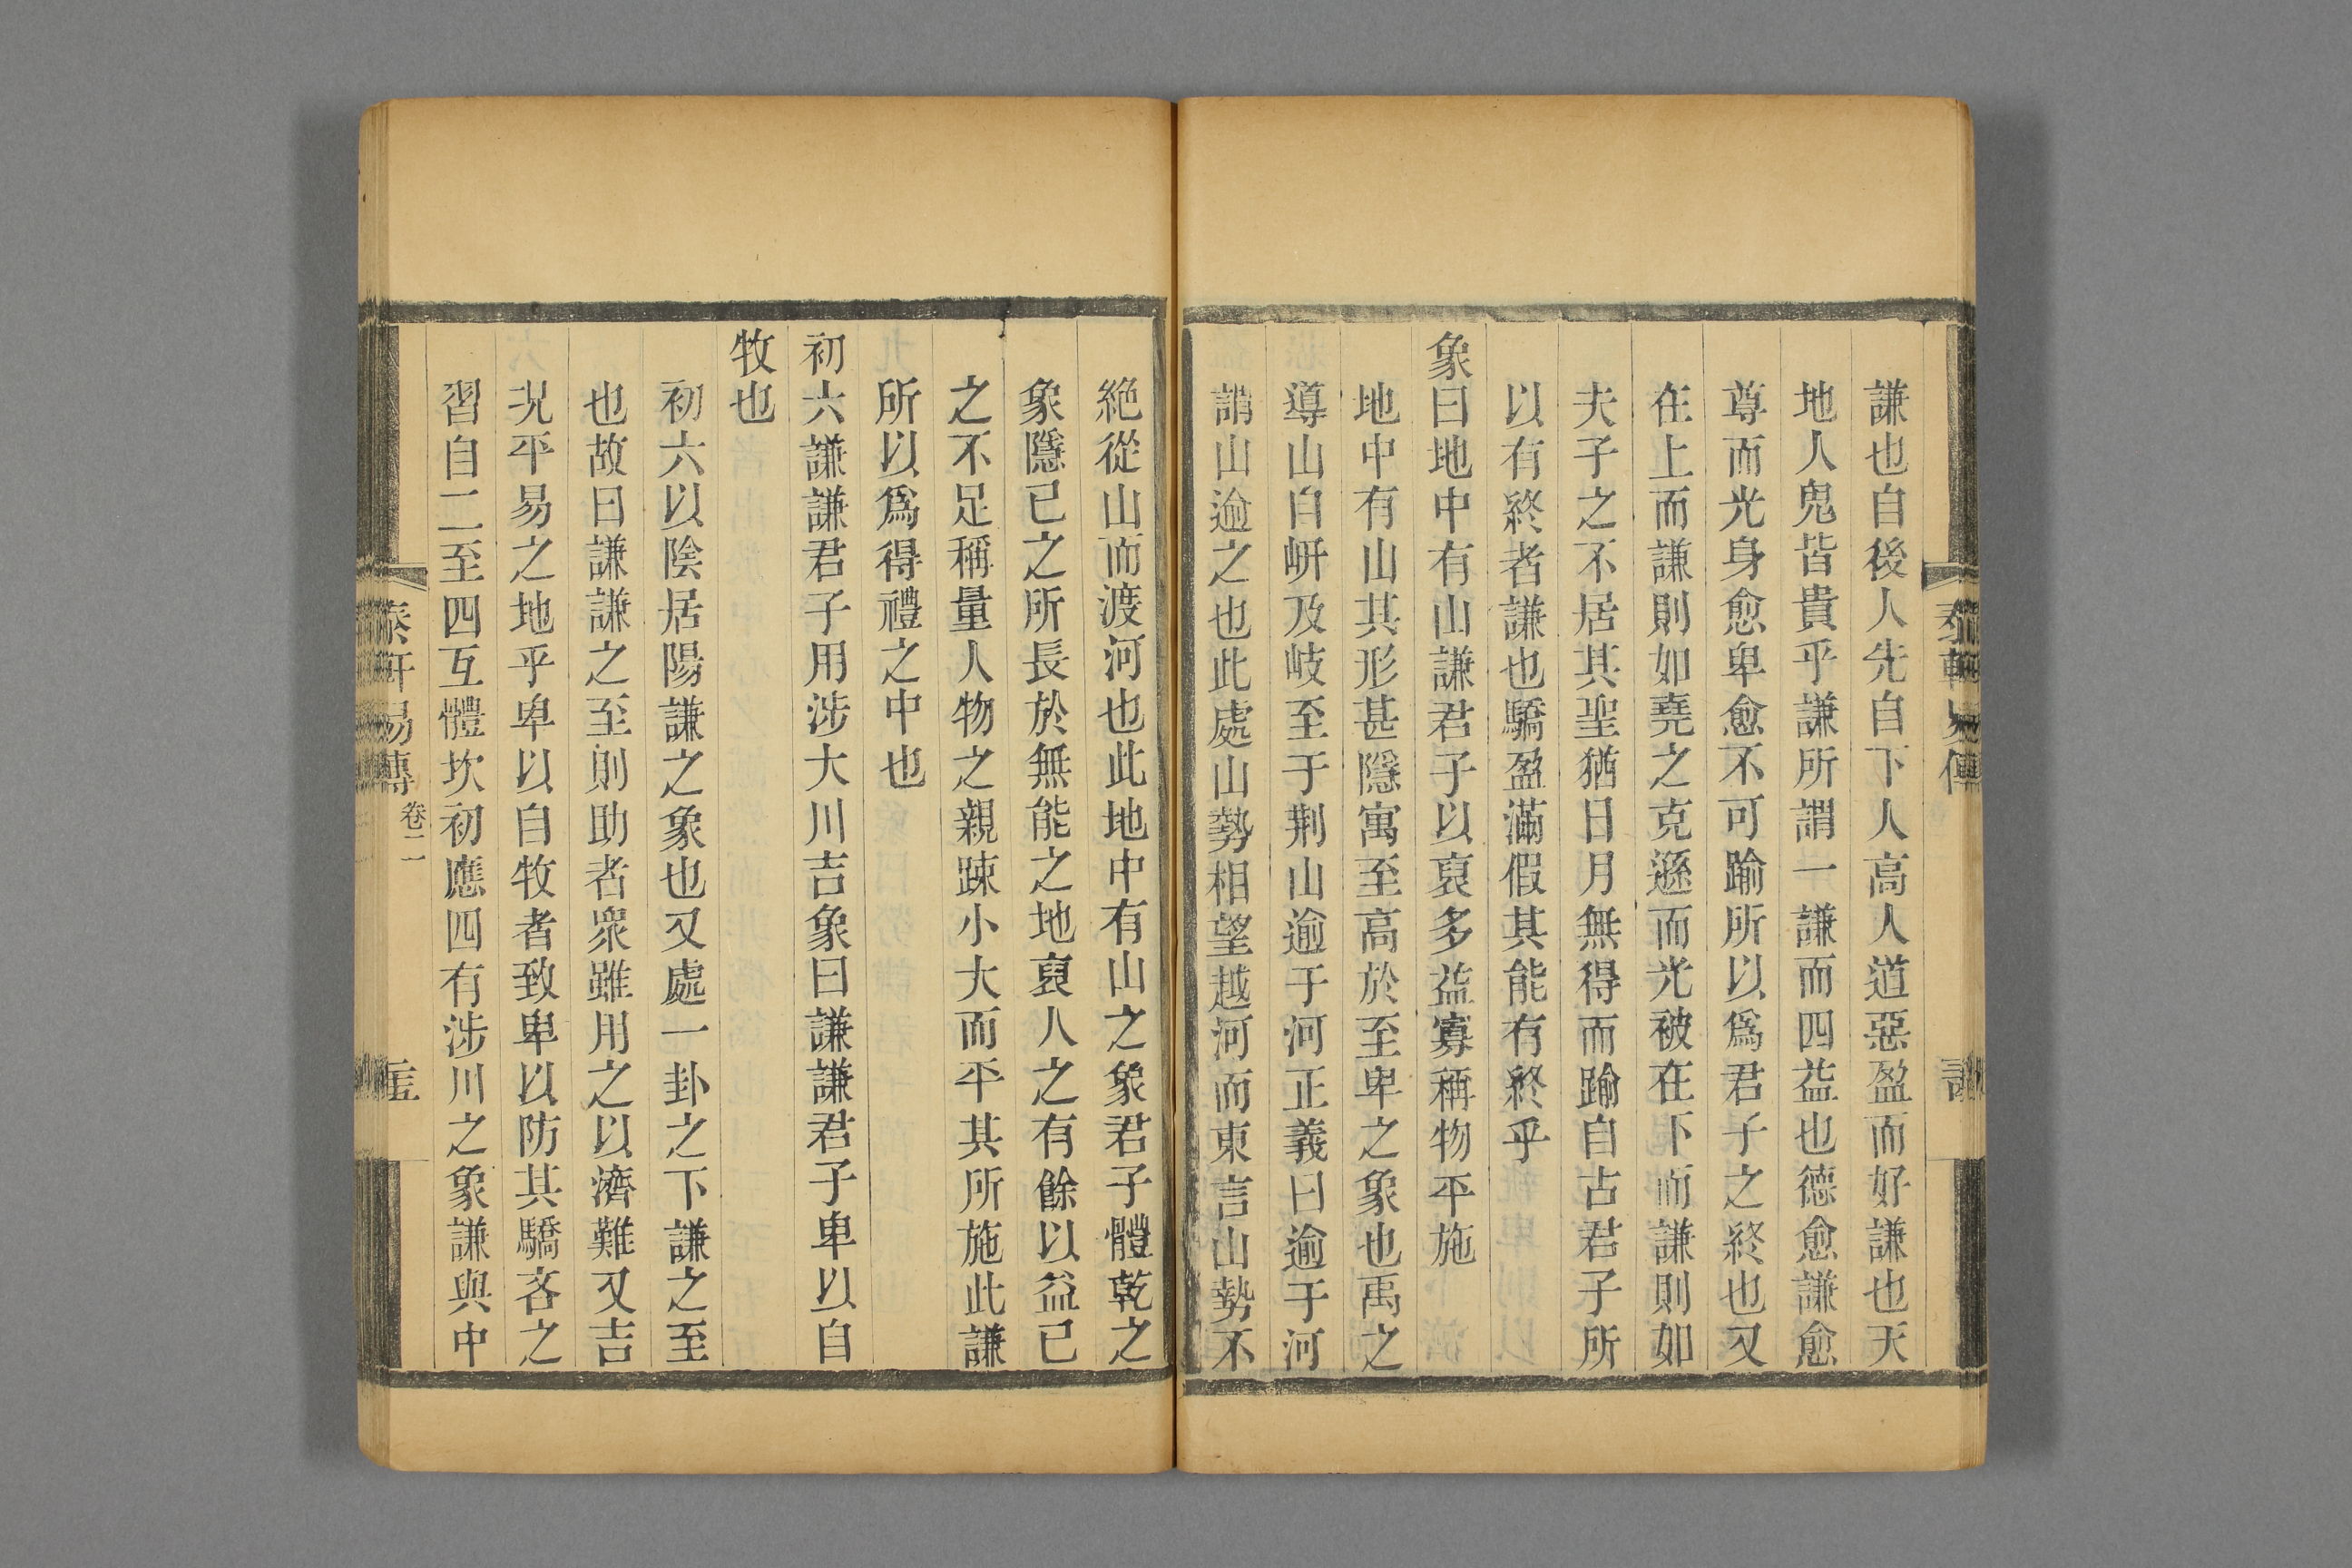 謙也自後人先自下人高人道惡盈而好謙也天
地人鬼皆貴乎謙所謂一謙而四益也德愈謙愈
尊而光身愈卑愈不可踰所以爲君子之終也又
在上而謙則如堯之克遜而光被在下而謙則如
夫子之不居其聖猶日月無得而踰自古君子所
以有終者謙也驕盈滿假其能有終乎
象曰地中有山謙君子以裒多益寡稱物平施
地中有山其形甚隱寓至高於至卑之象也禹之
導山自岍及岐至于荆山逾于河正義曰逾于河
謂山逾之也此處山勢相望越河而東言山勢不
絶從山而渡河也此地中有山之象君子體乾之
象隱已之所長於無能之地裒人之有餘以益已
之不足稱量人物之親疎小大而平其所施此謙
所以爲得禮之中也
初六謙謙君子用涉大川吉象曰謙謙君子卑以自
牧也
初六以陰居陽謙之象也又處一卦之下謙之至
也故曰謙謙之至則助者衆雖用之以濟難又吉
况平易之地乎卑以自牧者致卑以防其驕吝之
習自二至四互體坎初應四有涉川之象謙與中
泰軒易傳 卷二